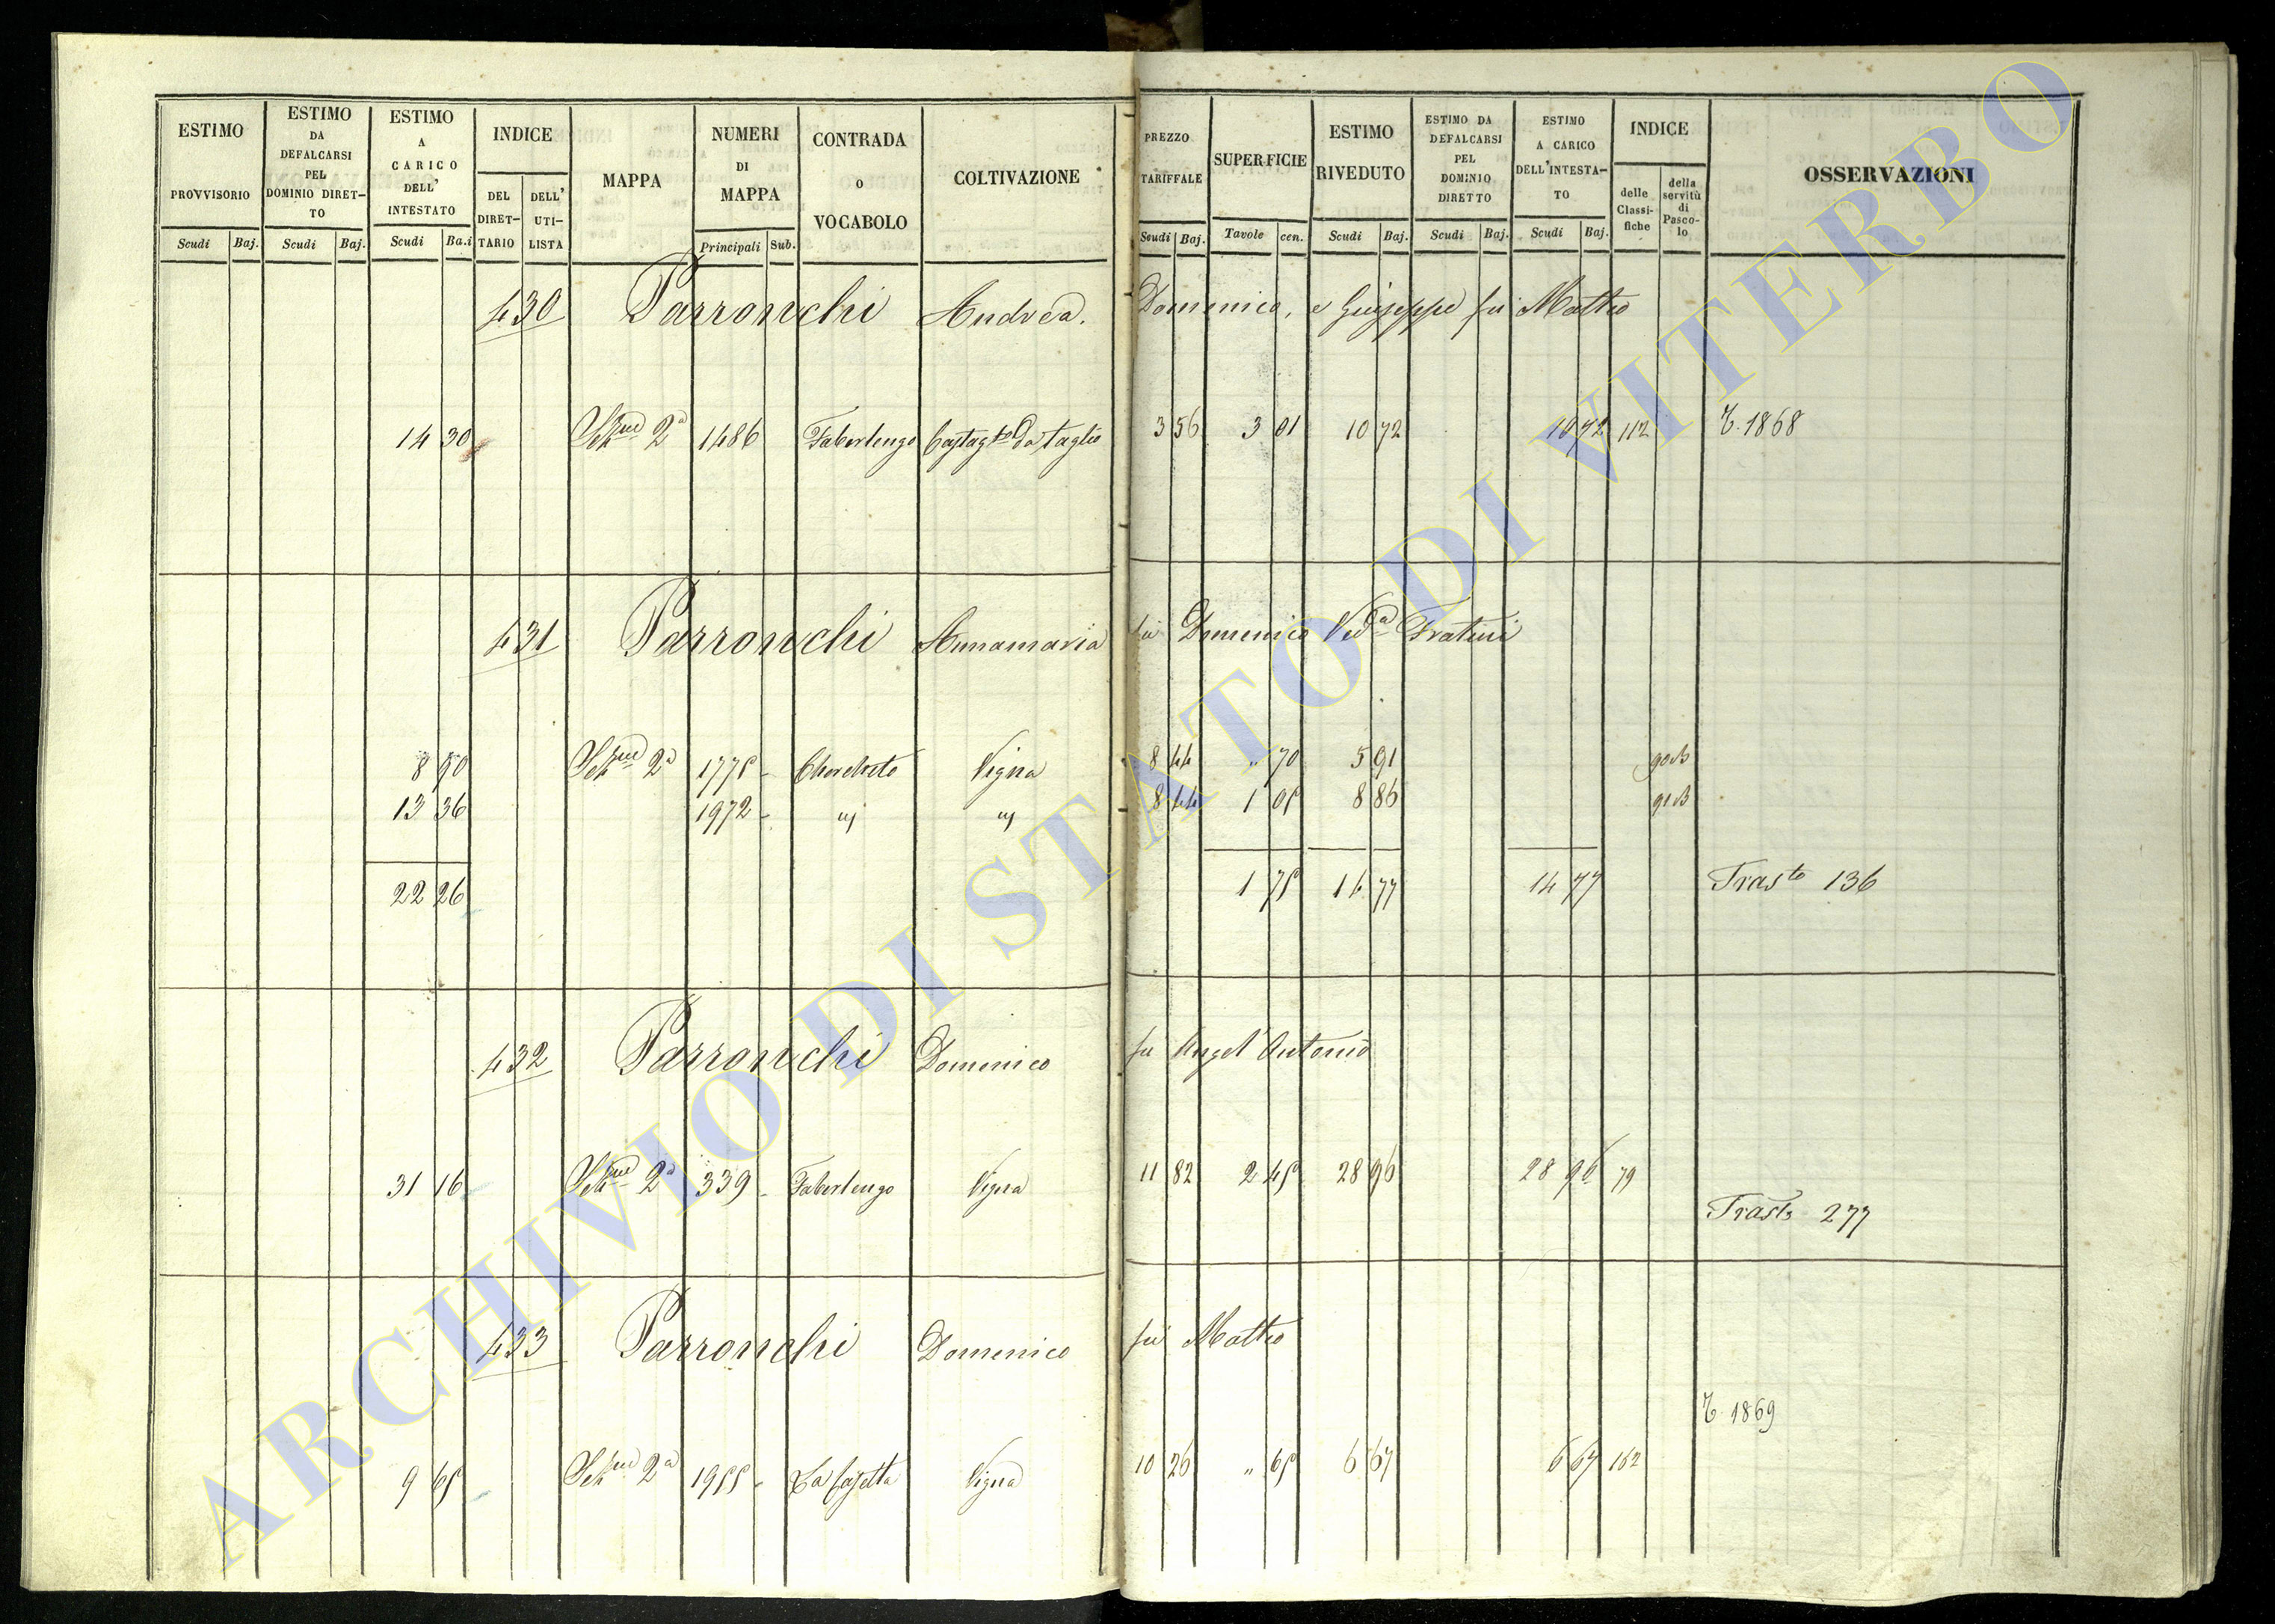 ESTIMO PROVVISORIO Scudi Baj.
ESTIMO DA DEFALCARSI PEL DOMINIO DIRET-TO Scudi Baj.
ESTIMO A CARICO DELL' INTESTATO Scudi Ba.i
INDICE DEL DIRET-TARIO DELL' UTI-LISTA
MAPPA
NUMERI DI MAPPA Principali Sub.
CONTRADA o VOCABOLO
COLTIVAZIONE
PREZZO TARIFFALE Scudi Baj.
SUPERFICIE Tavole cen.
ESTIMO RIVEDUTO Scudi Baj.
ESTIMO DA DEFALCARSI PEL DOMINIO DIRETTO Scudi Baj.
ESTIMO A CARICO DELL'INTESTA-TO Scudi Baj.
INDICE delle Classi-fiche della servitù di Pasco-lo
OSSERVAZIONI
430 Parronchi Andrea. Domenico, e Giuseppe fu Matteo
14 30 2a 1486 Fabertengo Castagto da taglio 3 56 3 01 10 72 10 72 112 T. 1868
431 Parronchi Annamaria fu Domenico Veda Fratini
8 90 2a 1775 - Vigna 8 44 " 70 5 91
13 36 1972 - " " 8 44 1 05 8 86
22 26 1 75 14 77 14 77 Trasto 136
432 Parronchi Domenico fu Angel'Antonio
31 16 2a 339 - Fabertengo Vigna 11 82 2 45 28 96 28 96 79
Trasto 277
433 Parronchi Domenico fu Matteo
T. 1869
9 65 2a 1955 - La Vigna 10 26 " 65 6 67 6 67 162
ARCHIVIO DI STATO DI VITERBO